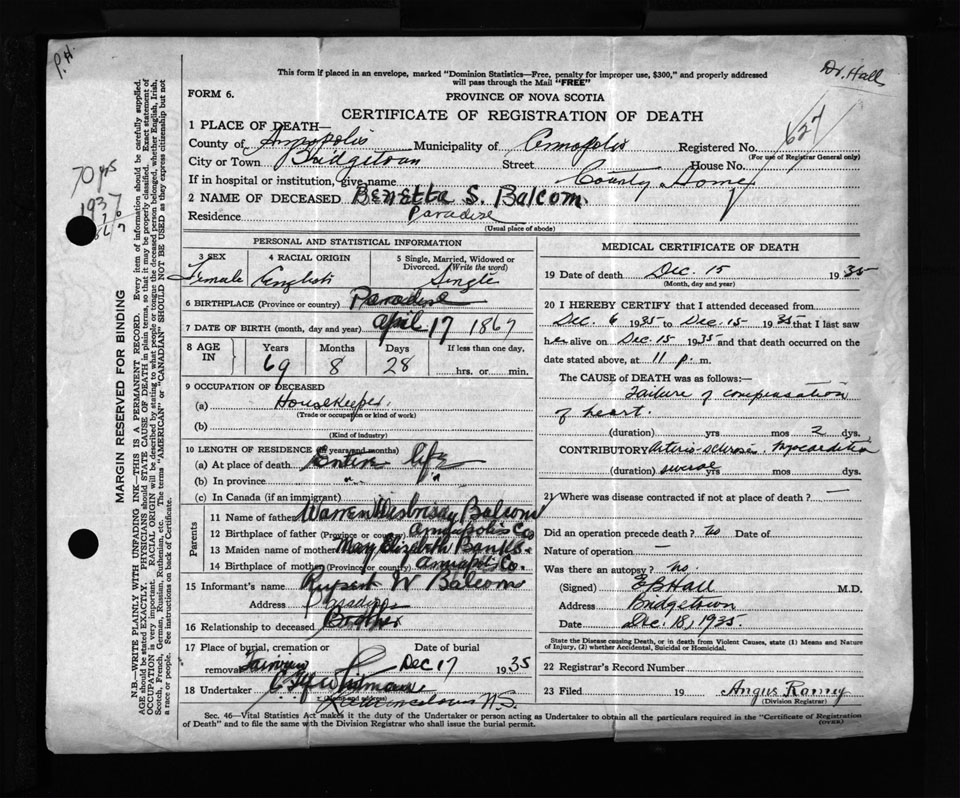 P.H.
Dr. Hall
This form if placed in an envelope, marked "Dominion Statistics—Free, penalty for improper use, $300," and properly addressed
will pass through the Mail "FREE"
FORM 6.
PROVINCE OF NOVA SCOTIA
CERTIFICATE OF REGISTRATION OF DEATH
627
1 PLACE OF DEATH—
County of Annapolis Municipality of Annapolis Registered No.
(For use of Registrar General only)
City or Town Bridgetown Street House No.
If in hospital or institution, give name County Home
2 NAME OF DECEASED Benetta S. Balcom.
Residence Paradise
(Usual place of abode)
70 yrs
1937
1867
MARGIN RESERVED FOR BINDING
N.B.—WRITE PLAINLY WITH UNFADING INK—THIS IS A PERMANENT RECORD. Every item of information should be carefully supplied.
AGE should be stated EXACTLY. PHYSICIANS should STATE CAUSE OF DEATH in plain terms, so that it may be properly classified. Exact statement of
OCCUPATION is very important. RACIAL ORIGIN will be described by stating to what people or tongue the deceased person belonged, whether English, Irish,
Scotch, French, German, Russian, Ruthenian, etc. The terms "AMERICAN" or "CANADIAN" SHOULD NOT BE USED as they express citizenship but not
a race or people. See instructions on back of Certificate.
PERSONAL AND STATISTICAL INFORMATION
3 SEX 4 RACIAL ORIGIN 5 Single, Married, Widowed or
Divorced. (Write the word)
Female English Single
6 BIRTHPLACE (Province or country) Paradise
7 DATE OF BIRTH (month, day and year) April 17 1867
8 AGE IN Years Months Days If less than one day,
69 8 28 hrs. or min.
9 OCCUPATION OF DECEASED
(a) Housekeeper.
(Trade or occupation or kind of work)
(b)
(Kind of industry)
10 LENGTH OF RESIDENCE (in years and months)
(a) At place of death Entire life
(b) In province " "
(c) In Canada (if an immigrant)
Parents
11 Name of father Warren Balcom
12 Birthplace of father (Province or country) Annapolis Co
13 Maiden name of mother May Elizabeth Banks.
14 Birthplace of mother (Province or country) Annapolis Co.
15 Informant's name Rupert W Balcom
Address Paradise
16 Relationship to deceased Brother
17 Place of burial, cremation or Date of burial
removal Dec 17 1935
18 Undertaker
(Name and address)
Lawrencetown N.S.
MEDICAL CERTIFICATE OF DEATH
19 Date of death Dec. 15 1935
(Month, day and year)
20 I HEREBY CERTIFY that I attended deceased from
Dec. 6 1935 to Dec. 15 1935 that I last saw
her alive on Dec. 15 1935 and that death occurred on the
date stated above, at 11 p. m.
The CAUSE of DEATH was as follows:—
Failure of compensation
of heart.
(duration) yrs mos 2 dys.
CONTRIBUTORY Arterio-sclerosis. Myocarditis
(duration) several yrs mos dys.
21 Where was disease contracted if not at place of death? —
Did an operation precede death? no Date of
Nature of operation —
Was there an autopsy? no
(Signed) E B Hall M.D.
Address Bridgetown
Date Dec. 18, 1935
State the Disease causing Death, or in death from Violent Causes, state (1) Means and Nature
of Injury, (2) whether Accidental, Suicidal or Homicidal.
22 Registrar's Record Number
23 Filed 19 Angus Ramey
(Division Registrar)
Sec. 46—Vital Statistics Act makes it the duty of the Undertaker or person acting as Undertaker to obtain all the particulars required in the "Certificate of Registration
of Death" and to file the same with the Division Registrar who shall issue the burial permit. (OVER)